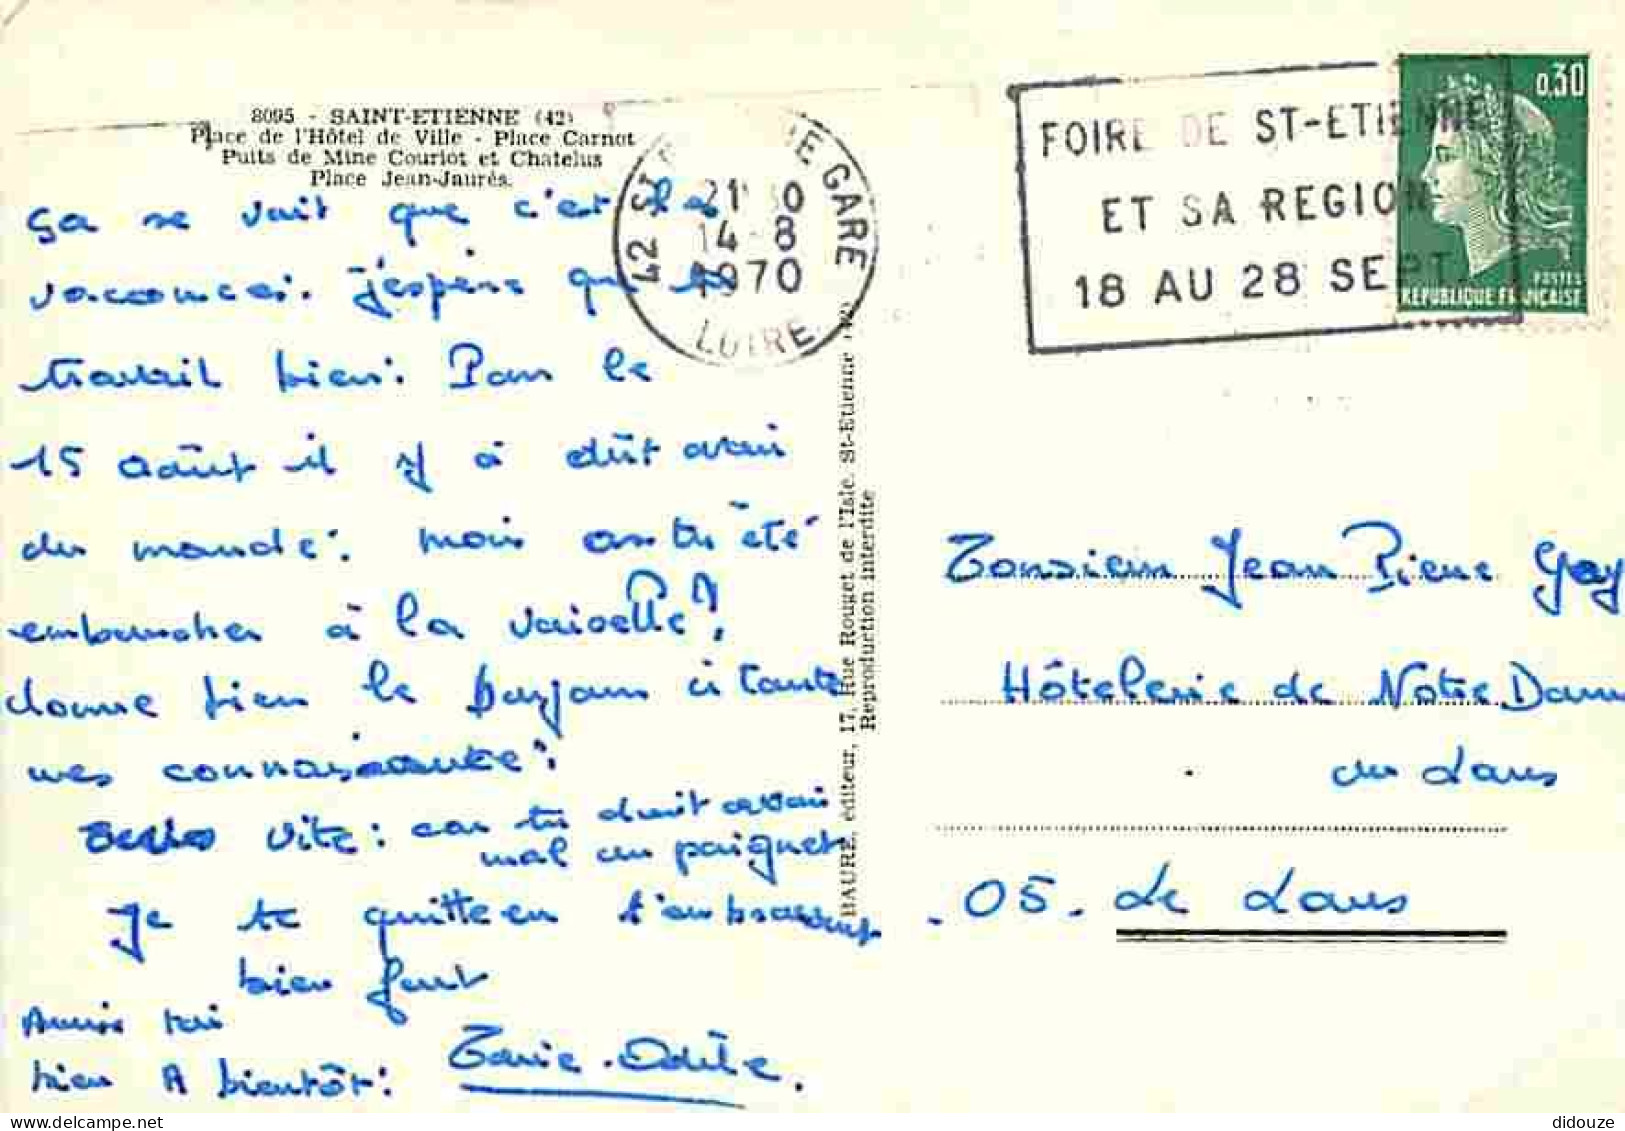 8095 - SAINT-ETIENNE (42)
Place de l'Hôtel de Ville - Place Carnot
Puits de Mine Couriot et Chatelus
Place Jean-Jaurès.
ça se voit que c'est les
vaccances. j'espère que le
travail bien. Pour le
15 août il y à dût avoir
du monde. mais as tu été
embaucher à la vaiselle?
donne bien le bonjour à toute
mes connaissance.
vite: car tu doit avoir
mal au poignet
Je te quitte en t'embrassant
bien fort
Amuse toi
bien A bientôt: Marie-Odile.
42 ST E NE GARE
21 30
14-8
1970
LOIRE
FOIRE DE ST-ETIENNE
ET SA REGION
18 AU 28 SEPT
0,30
POSTES
REPUBLIQUE FRANÇAISE
BAURE, éditeur, 17, Rue Rouget de l'Isle. St-Etienne (42)
Reproduction interdite
Monsieur Jean Pierre Gay
Hôtelerie de Notre Dam
du Laus
.05. Le Laus
didouze